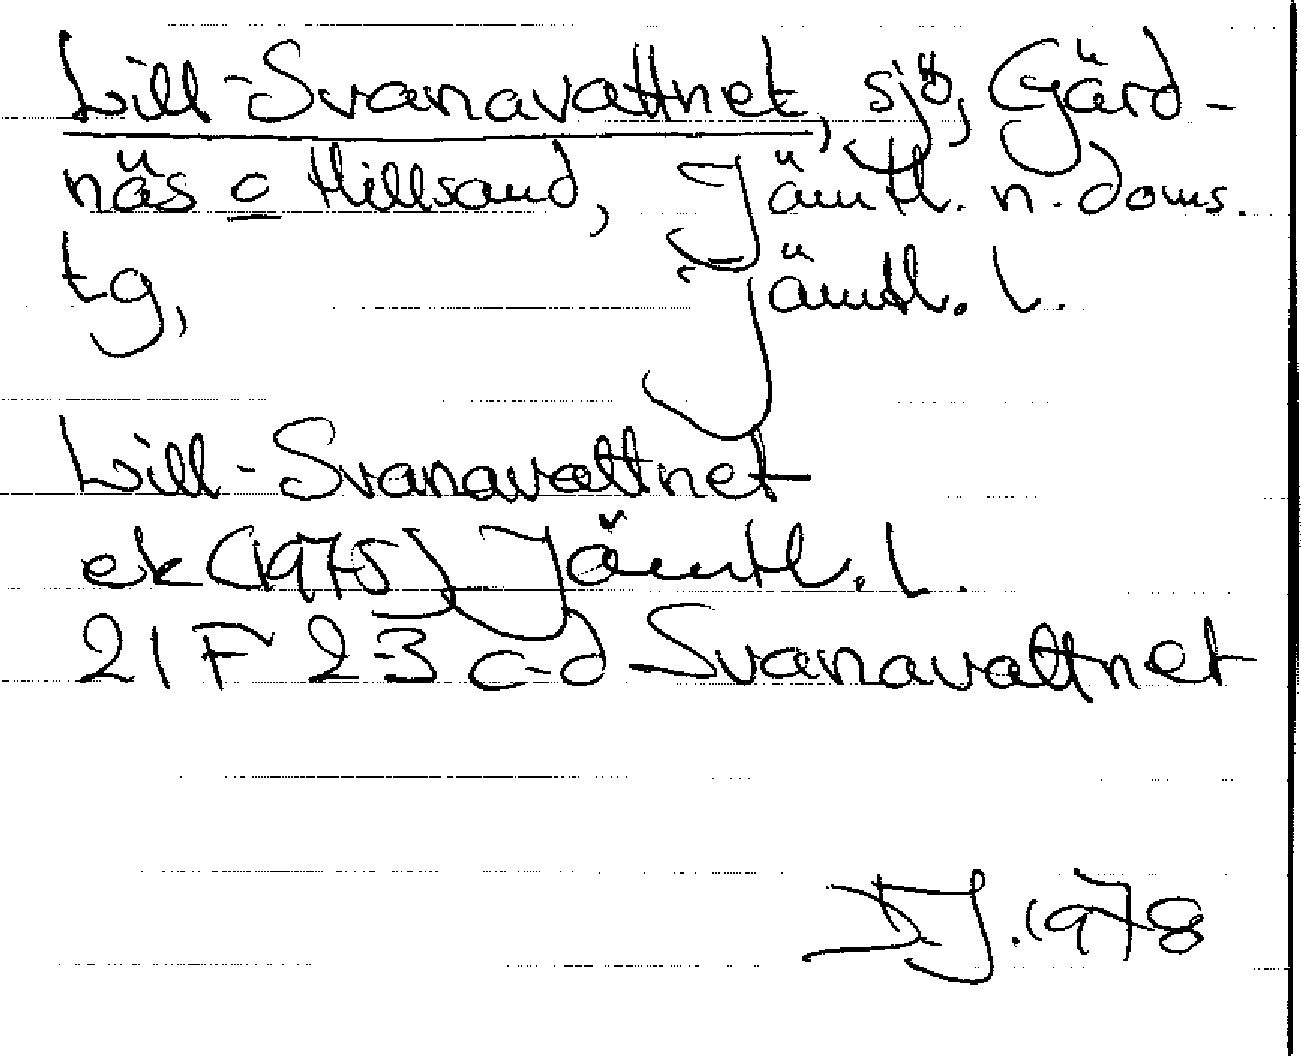 Lill-Svanavattnet, sjö, Gärd-
näs o Hillsand, Jämtl. n. doms.
tg, Jämtl. l.
Lill-Svanavattnet
ek (1975) Jämtl. l.
21 F 2-3 c-d Svanavattnet
DJ. 1978